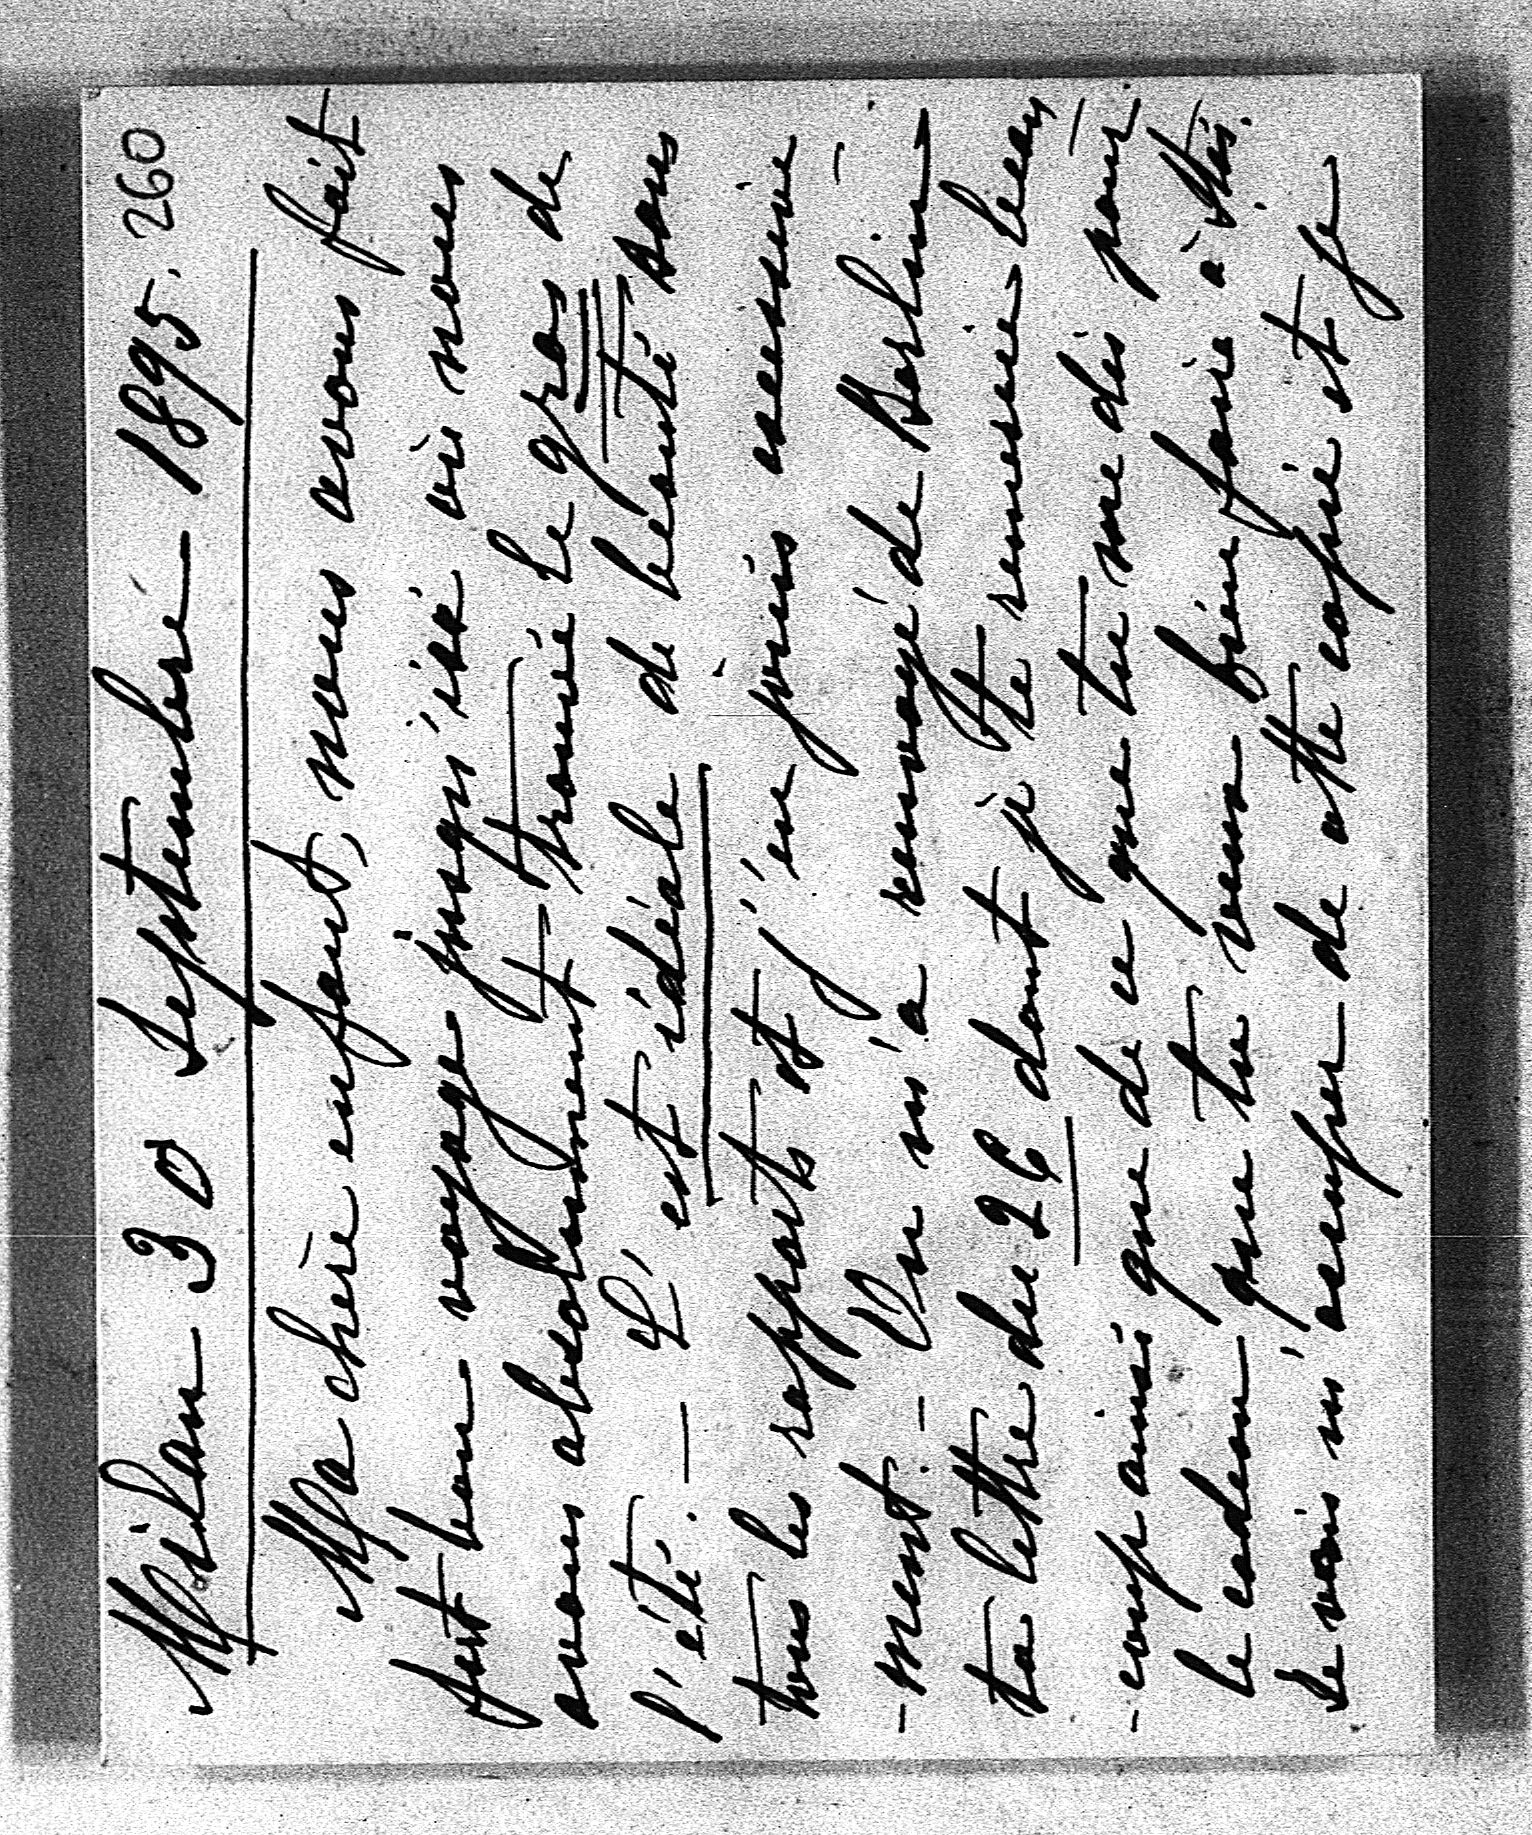 Milan 30 Septembre 1895. 260
Ma chère enfant, nous avons fait
fort bon voyage jusqu'ici où nous
avons absolument trouvé le gros de
l'été. — C'est idéale de beauté sous
tous les rapports et j'en jouis excessive-
-ment. — On m'a renvoyé de Berlin
ta lettre du 26 dont je te remercie beau-
-coup ainsi que de ce que tu me dis pour
le cadeau que tu veux bien faire à
devais m'occuper de cette copie et je